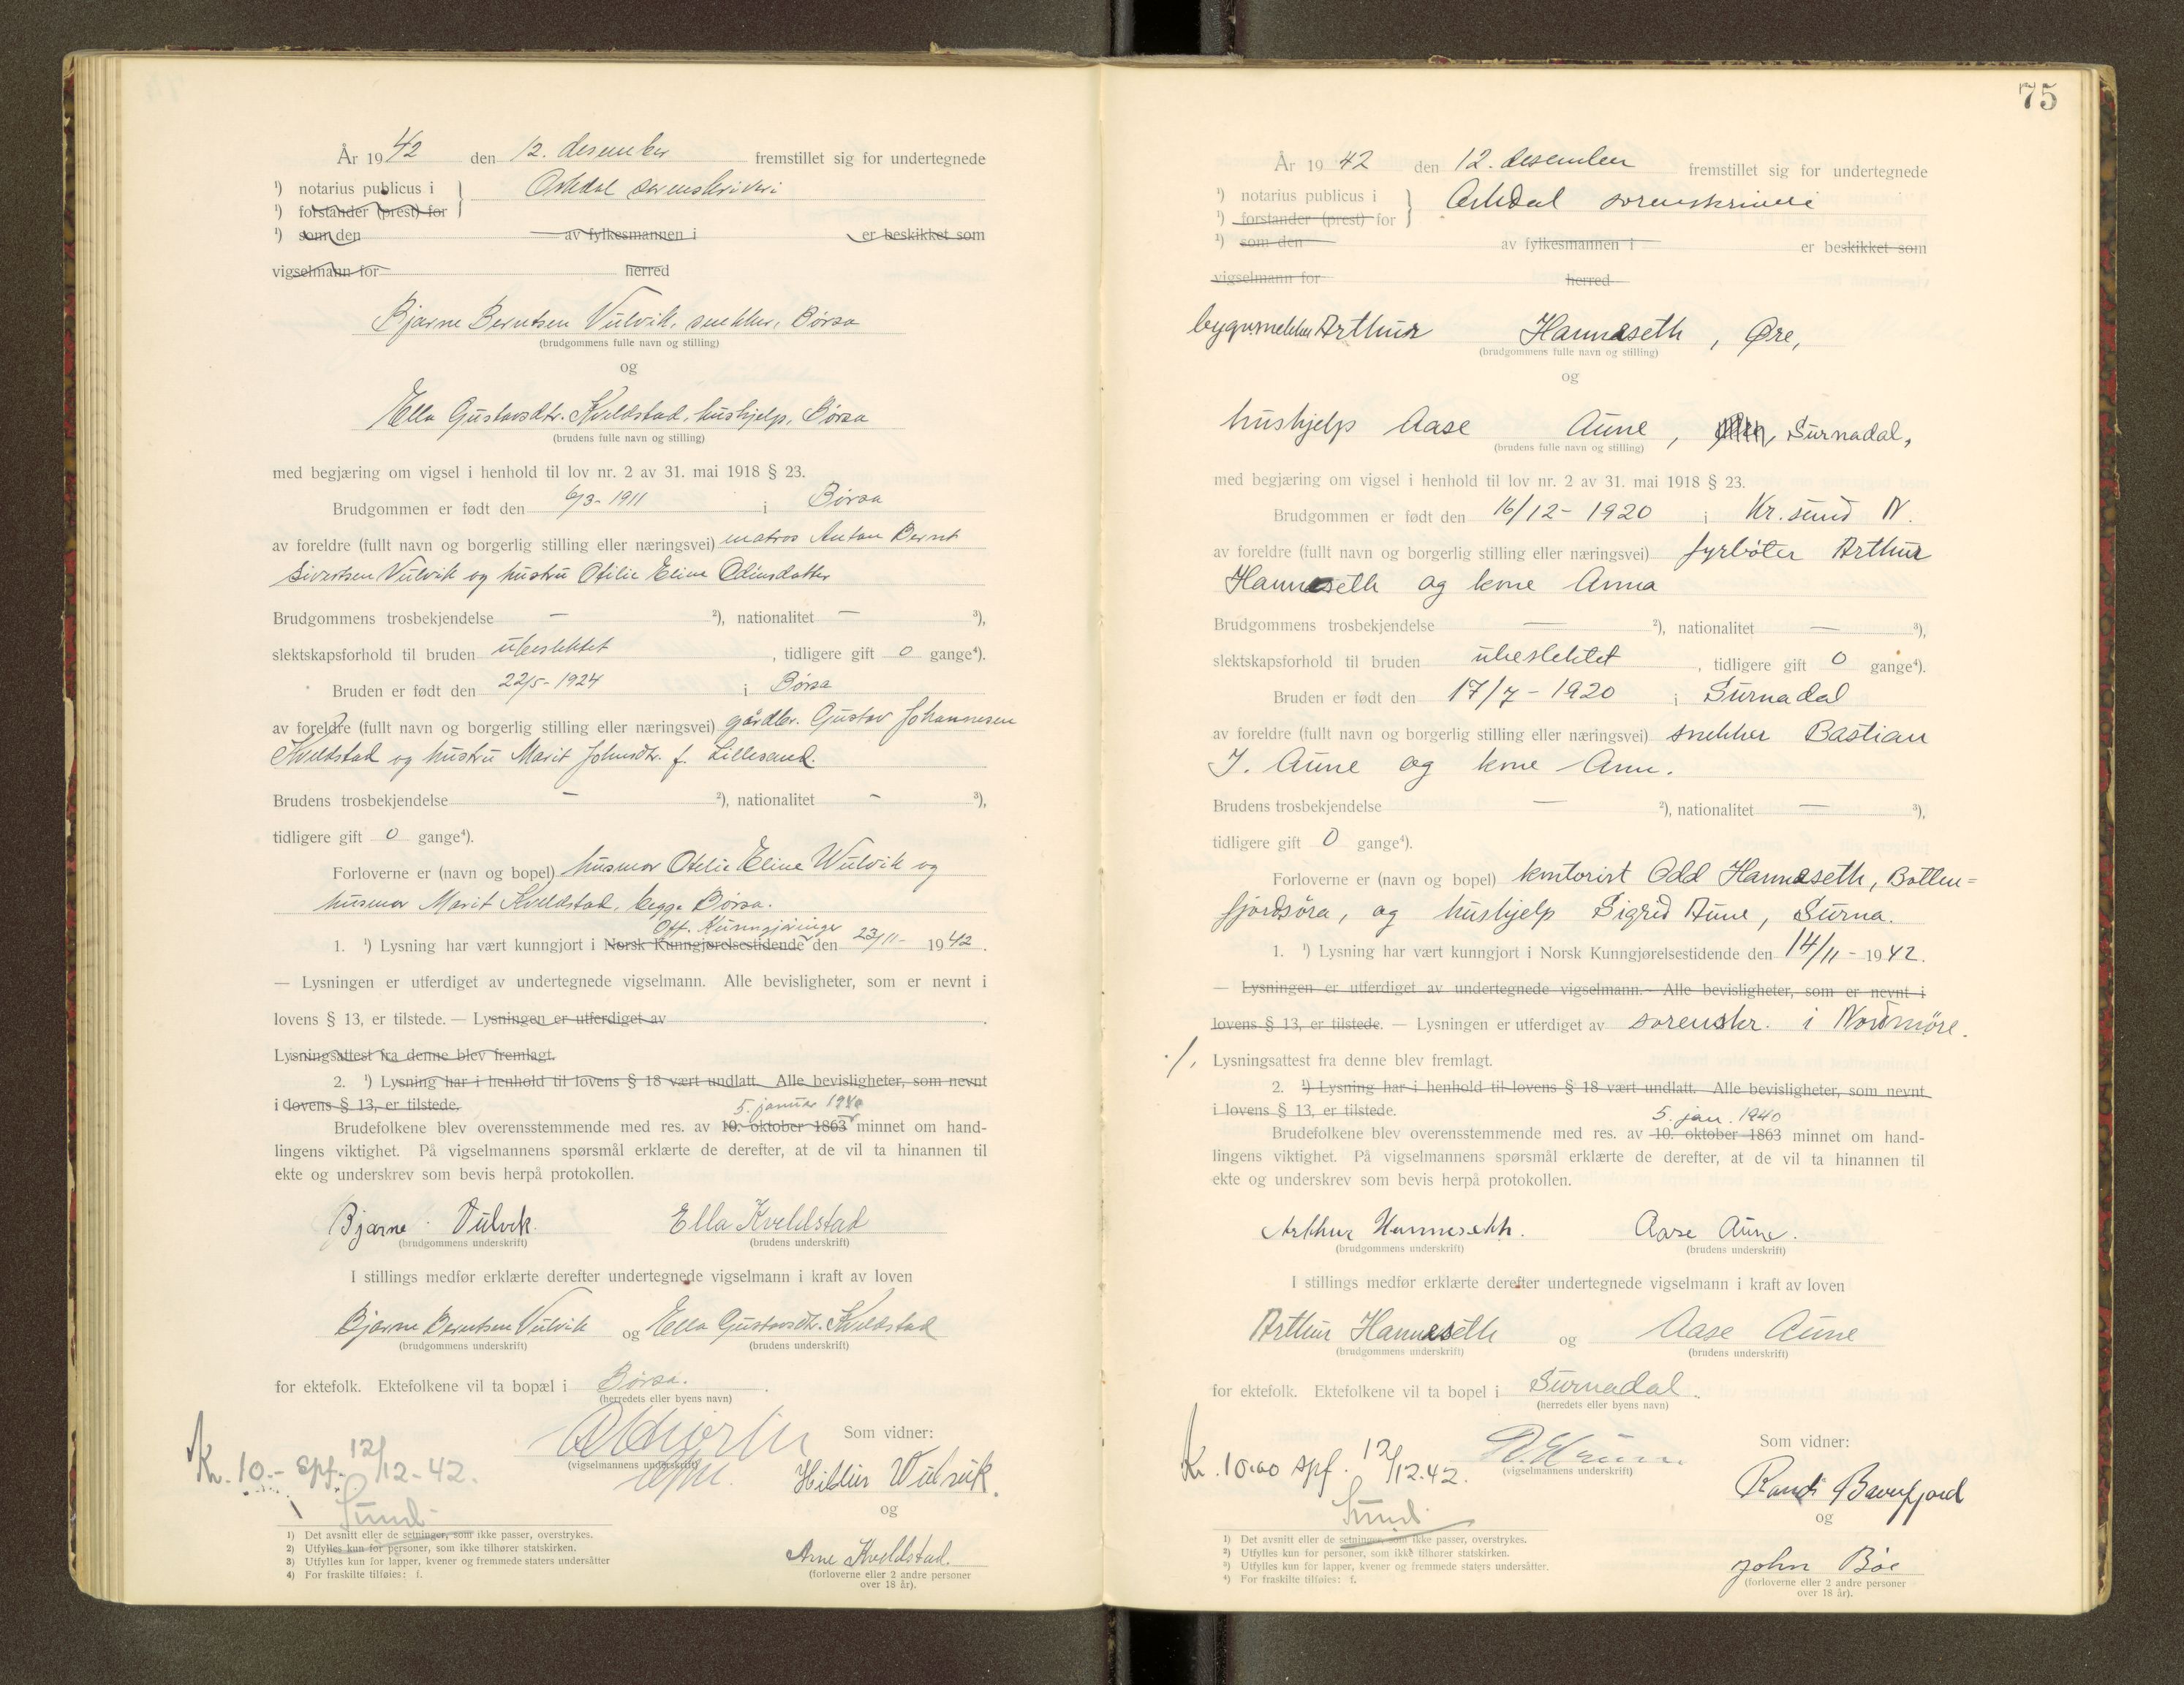 År 1942 den 12. desember fremstillet sig for undertegnede
¹) notarius publicus i } Orkdal sorenskriveri
¹) forstander (prest) for
¹) som den av fylkesmannen i er beskikket som
vigselmann for herred
Bjarne Berntsen Vulvik, snekker, Børsa
(brudgommens fulle navn og stilling)
og
Ella Gustavsdtr. Kveldstad, hushjelp, Børsa
(brudens fulle navn og stilling)
med begjæring om vigsel i henhold til lov nr. 2 av 31. mai 1918 § 23.
Brudgommen er født den 6/3- 1911 i Børsa
av foreldre (fullt navn og borgerlig stilling eller næringsvei) matros Anton Bernt
Sivertsen Vulvik og hustru Otilie Eline Odinsdatter
Brudgommens trosbekjendelse — ²), nationalitet — ³),
slektskapsforhold til bruden ubeslektet, tidligere gift 0 gange⁴).
Bruden er født den 22/5- 1924 i Børsa
av foreldre (fullt navn og borgerlig stilling eller næringsvei) gårdbr. Gustav Johannesen
Kveldstad og hustru Marit Johnsdtr. f. Lillesand.
Brudens trosbekjendelse — ²), nationalitet - ³),
tidligere gift 0 gange⁴).
Forloverne er (navn og bopel) husmor Otelie Eline Wulvik og
husmor Marit Kveldstad, begge Børsa.
Off. Kunngjøringer
1. ¹) Lysning har vært kunngjort i Norsk Kunngjørelsestidende den 23/11- 1942.
— Lysningen er utferdiget av undertegnede vigselmann. Alle bevisligheter, som er nevnt i
lovens § 13, er tilstede. — Lysningen er utferdiget av .
Lysningsattest fra denne blev fremlagt.
2. ¹) Lysning har i henhold til lovens § 18 vært undlatt. Alle bevisligheter, som nevnt
i lovens § 13, er tilstede.
5. januar 1940
Brudefolkene blev overensstemmende med res. av 10. oktober 1863 minnet om hand-
lingens viktighet. På vigselmannens spørsmål erklærte de derefter, at de vil ta hinannen til
ekte og underskrev som bevis herpå protokollen.
Bjarne Vulvik. Ella Kveldstad
(brudgommens underskrift) (brudens underskrift)
I stillings medfør erklærte derefter undertegnede vigselmann i kraft av loven
Bjarne Berntsen Vulvik og Ella Gustavsdtr. Kveldstad
(brudgommens underskrift) (brudens underskrift)
for ektefolk. Ektefolkene vil ta bopæl i Børsa.
(herredets eller byens navn)
Som vidner:
Kr. 10.- spf. 12/12-42.
(vigselmannens underskrift)
Hildur Wulvik.
Sund
og
Arne Kveldstad.
(forloverne eller 2 andre personer
over 18 år).
1) Det avsnitt eller de setninger, som ikke passer, overstrykes.
2) Utfylles kun for personer, som ikke tilhører statskirken.
3) Utfylles kun for lapper, kvener og fremmede staters undersåtter
4) For fraskilte tilføies: f.
75
År 1942 den 12. desember fremstillet sig for undertegnede
¹) notarius publicus i } Orkdal sorenskriveri
¹) forstander (prest) for
¹) som den av fylkesmannen i er beskikket som
vigselmann for herred
bygnsnekker Arthur Hanneseth, Øre,
(brudgommens fulle navn og stilling)
og
hushjelp Aase Aune, Surnadal,
(brudens fulle navn og stilling)
med begjæring om vigsel i henhold til lov nr. 2 av 31. mai 1918 § 23.
Brudgommen er født den 16/12- 1920 i Kr.sund N.
av foreldre (fullt navn og borgerlig stilling eller næringsvei) fyrbøter Arthur
Hanneseth og kone Anna
Brudgommens trosbekjendelse — ²), nationalitet — ³),
slektskapsforhold til bruden ubeslektet, tidligere gift 0 gange⁴).
Bruden er født den 17/7- 1920 i Surnadal
av foreldre (fullt navn og borgerlig stilling eller næringsvei) snekker Bastian
J. Aune og kone Ann.
Brudens trosbekjendelse — ²), nationalitet — ³),
tidligere gift 0 gange⁴).
Forloverne er (navn og bopel) kontorist Odd Hanneseth, Batten=
fjordsøra, og hushjelp Sigrid Aune, Surna.
1. ¹) Lysning har vært kunngjort i Norsk Kunngjørelsestidende den 14/11- 1942.
— Lysningen er utferdiget av undertegnede vigselmann. - Alle bevisligheter, som er nevnt i
lovens § 13, er tilstede. — Lysningen er utferdiget av sorenskr. i Nordmøre.
./. Lysningsattest fra denne blev fremlagt.
2. ¹) Lysning har i henhold til lovens § 18 vært undlatt. Alle bevisligheter, som nevnt
i lovens § 13, er tilstede.
5. jan. 1940
Brudefolkene blev overensstemmende med res. av 10. oktober 1863 minnet om hand-
lingens viktighet. På vigselmannens spørsmål erklærte de derefter, at de vil ta hinannen til
ekte og underskrev som bevis herpå protokollen.
Arthur Hanneseth. Aase Aune.
(brudgommens underskrift) (brudens underskrift)
I stillings medfør erklærte derefter undertegnede vigselmann i kraft av loven
Arthur Hanneseth og Aase Aune
(brudgommens underskrift) (brudens underskrift)
for ektefolk. Ektefolkene vil ta bopel i Surnadal.
(herredets eller byens navn)
Som vidner:
Kr. 10.00 spf. 12/12.42.
(vigselmannens underskrift)
Randi Bavefjord
Sund
og
John Bøe
(forloverne eller 2 andre personer
over 18 år).
¹) Det avsnitt eller de setninger, som ikke passer, overstrykes.
²) Utfylles kun for personer, som ikke tilhører statskirken.
³) Utfylles kun for lapper, kvener og fremmede staters undersåtter.
⁴) For fraskilte tilføies: f.